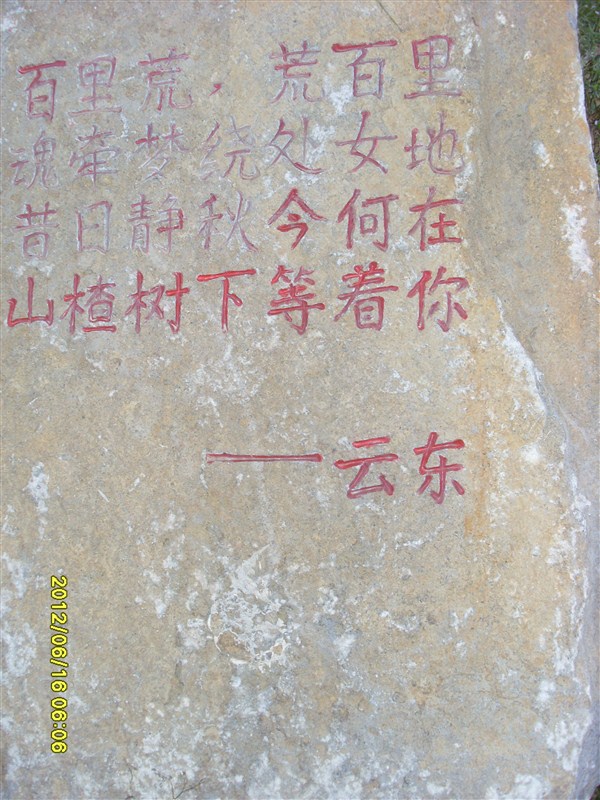 百里荒，荒百里
魂牵梦绕处女地
昔日静秋今何在
山楂树下等着你
——云东
2012/06/16 06:06